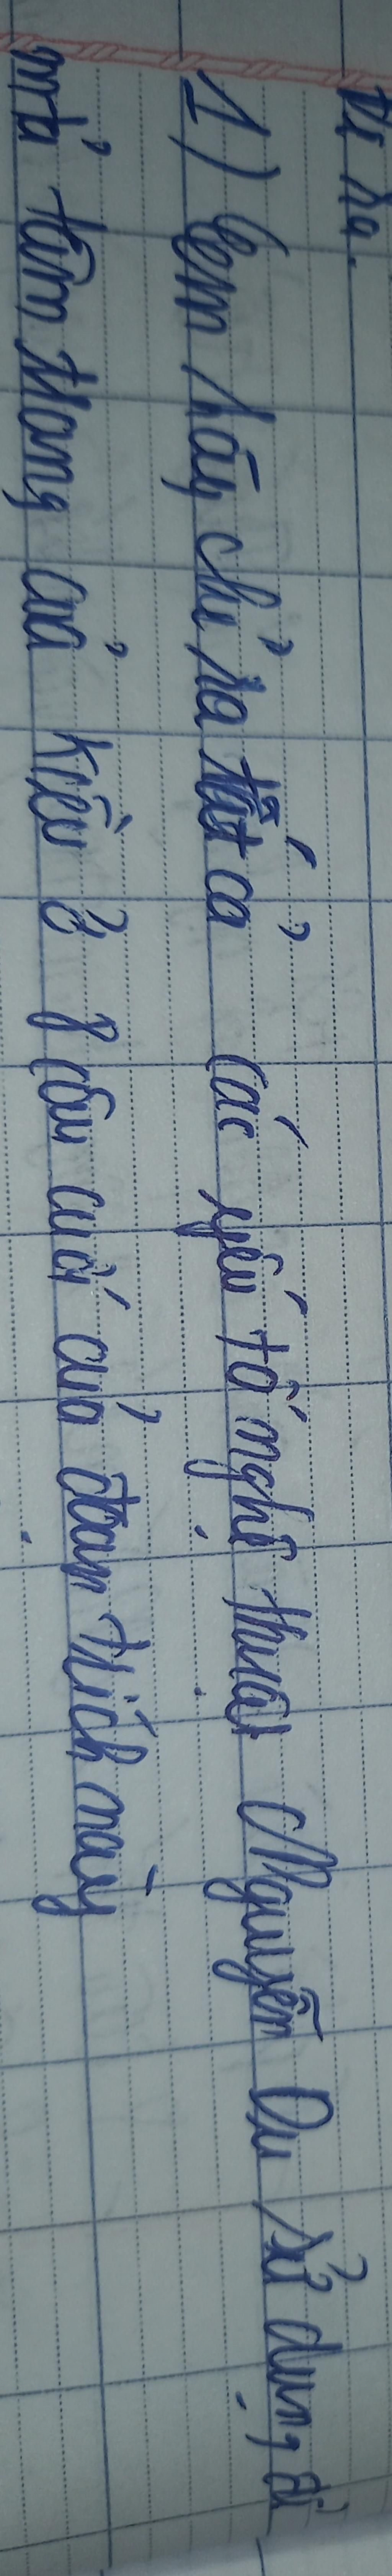 1) Em hãy chỉ ra tất cả các yếu tố nghệ thuật Nguyễn Du sử dụng để
mả tâm trạng của Kiều ở 8 câu cuối của đoạn trích này